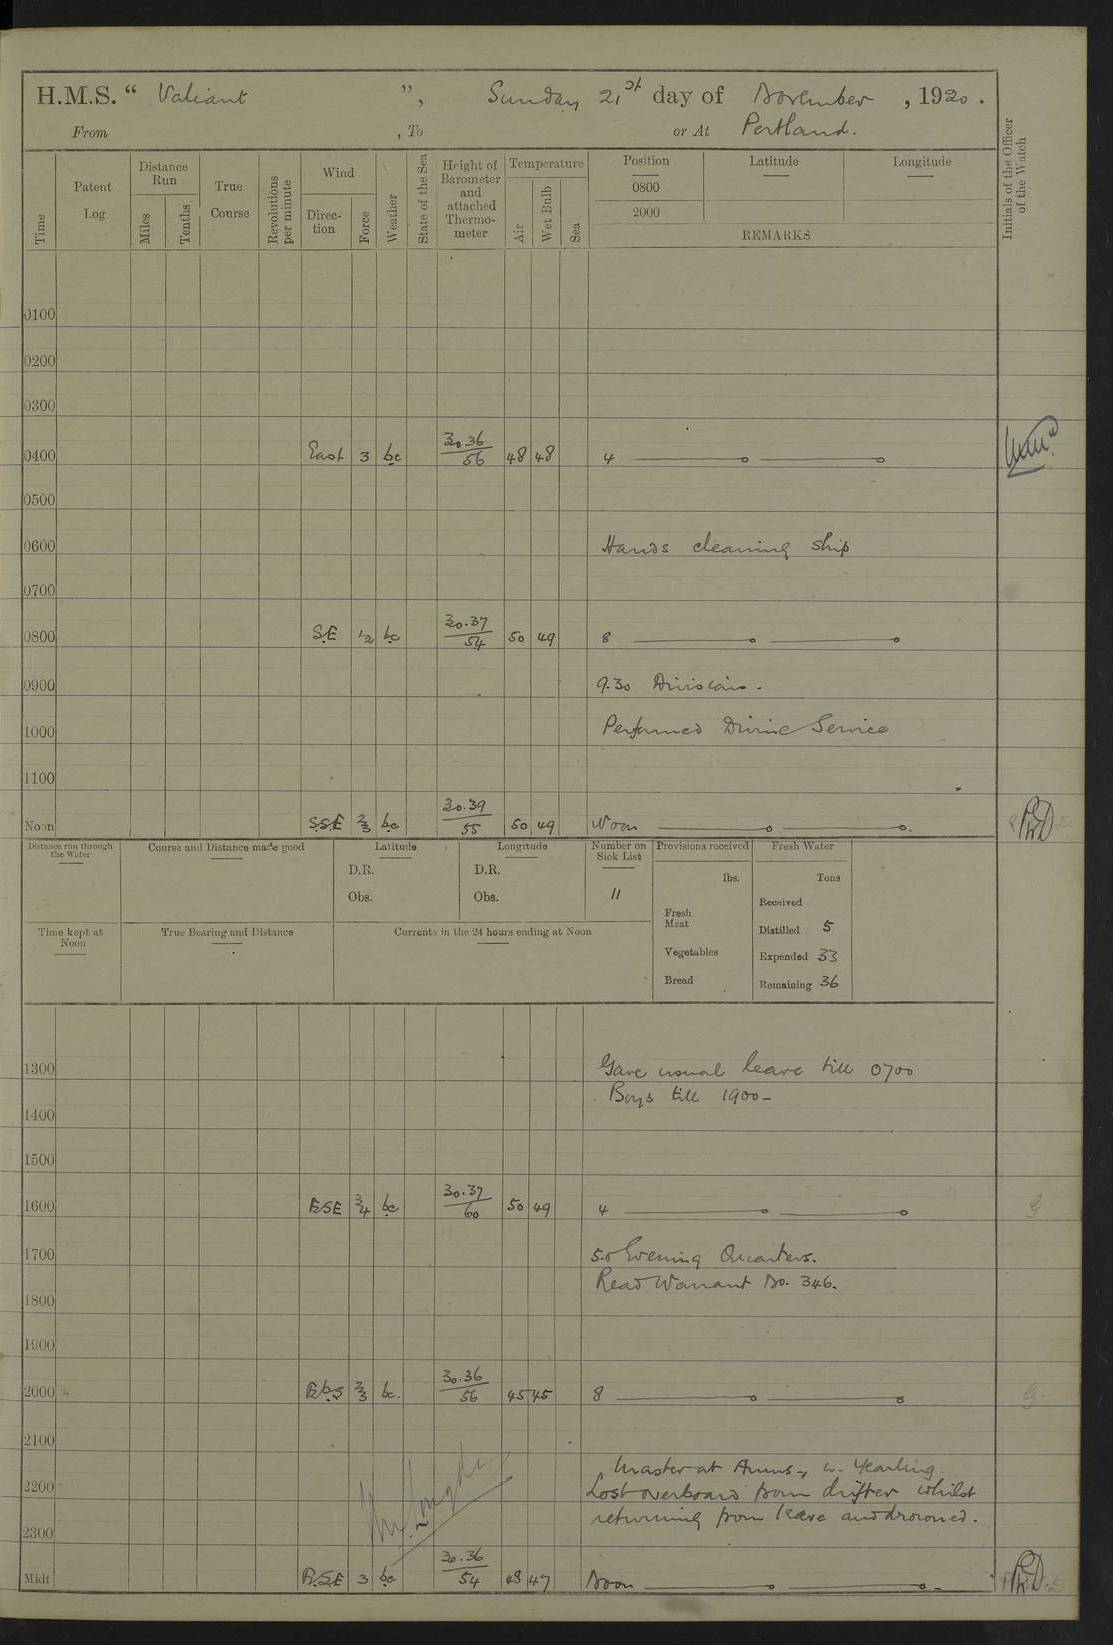 H.M.S. “ Valiant ”, Sunday 21st day of November , 1920 .
From , To or At Portland.
Time
Patent Log
Distance Run
Miles
Tenths
True Course
Revolutions per minute
Wind
Direc-tion
Force
Weather
State of the Sea
Height of Barometer and attached Thermo-meter
Temperature
Air
Wet Bulb
Sea
Position Latitude Longitude
0800
2000
REMARKS
Initials of the Officer of the Watch
0100
0200
0300
0400 East 3 bc 30.36 / 56 48 48 4
0500
0600 Hands cleaning ship
0700
0800 SE 1/2 bc 30.37 / 54 50 49 8
0900 9.30 Divisions.
1000 Performed Divine Service
1100
Noon SSE 2/3 bc 30.39 / 55 50 49 Noon
Distance run through the Water
Course and Distance made good
Latitude
D.R.
Obs.
Longitude
D.R.
Obs.
Number on Sick List
11
Provisions received
lbs.
Fresh Meat
Vegetables
Bread
Fresh Water
Tons
Received
Distilled 5
Expended 33
Remaining 36
Time kept at Noon
True Bearing and Distance
Currents in the 24 hours ending at Noon
1300 Gave usual leave till 0700
Boys till 1900-
1400
1500
1600 ESE 3/4 bc 30.37 / 60 50 49 4
1700 5.0 Evening Quarters.
Read Warrant No. 346.
1800
1900
2000 EbS 2/3 bc. 30.36 / 56 45 45 8
2100
Master at Arms, W. Yearling
2200 Lost overboard from drifter whilst
returning from leave and drowned.
2300
Midt ESE 3 bc 30.36 / 54 48 47 Noon